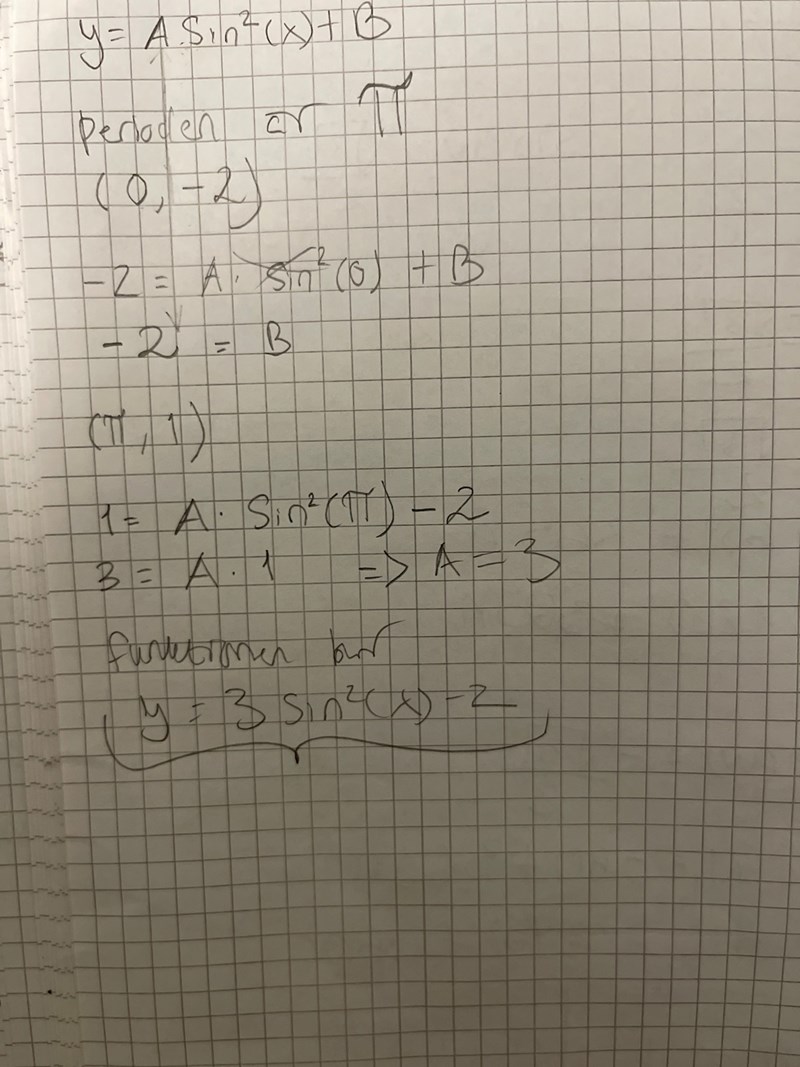 y = A·Sin²(x) + B
Perioden är π
(0, -2)
-2 = A· sin²(0) + B
-2 = B
(π, 1)
1 = A· Sin²(π) - 2
3 = A · 1 => A = 3
funktionen blir
y = 3 sin²(x) - 2